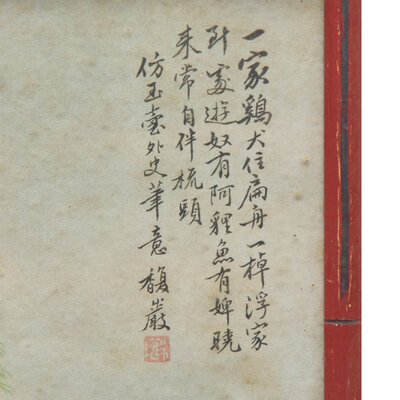 一家鷄犬住扁舟一棹浮家
到處遊奴有阿貍魚有婢曉
来常自伴梳頭
仿玉壺外史筆意馥巖